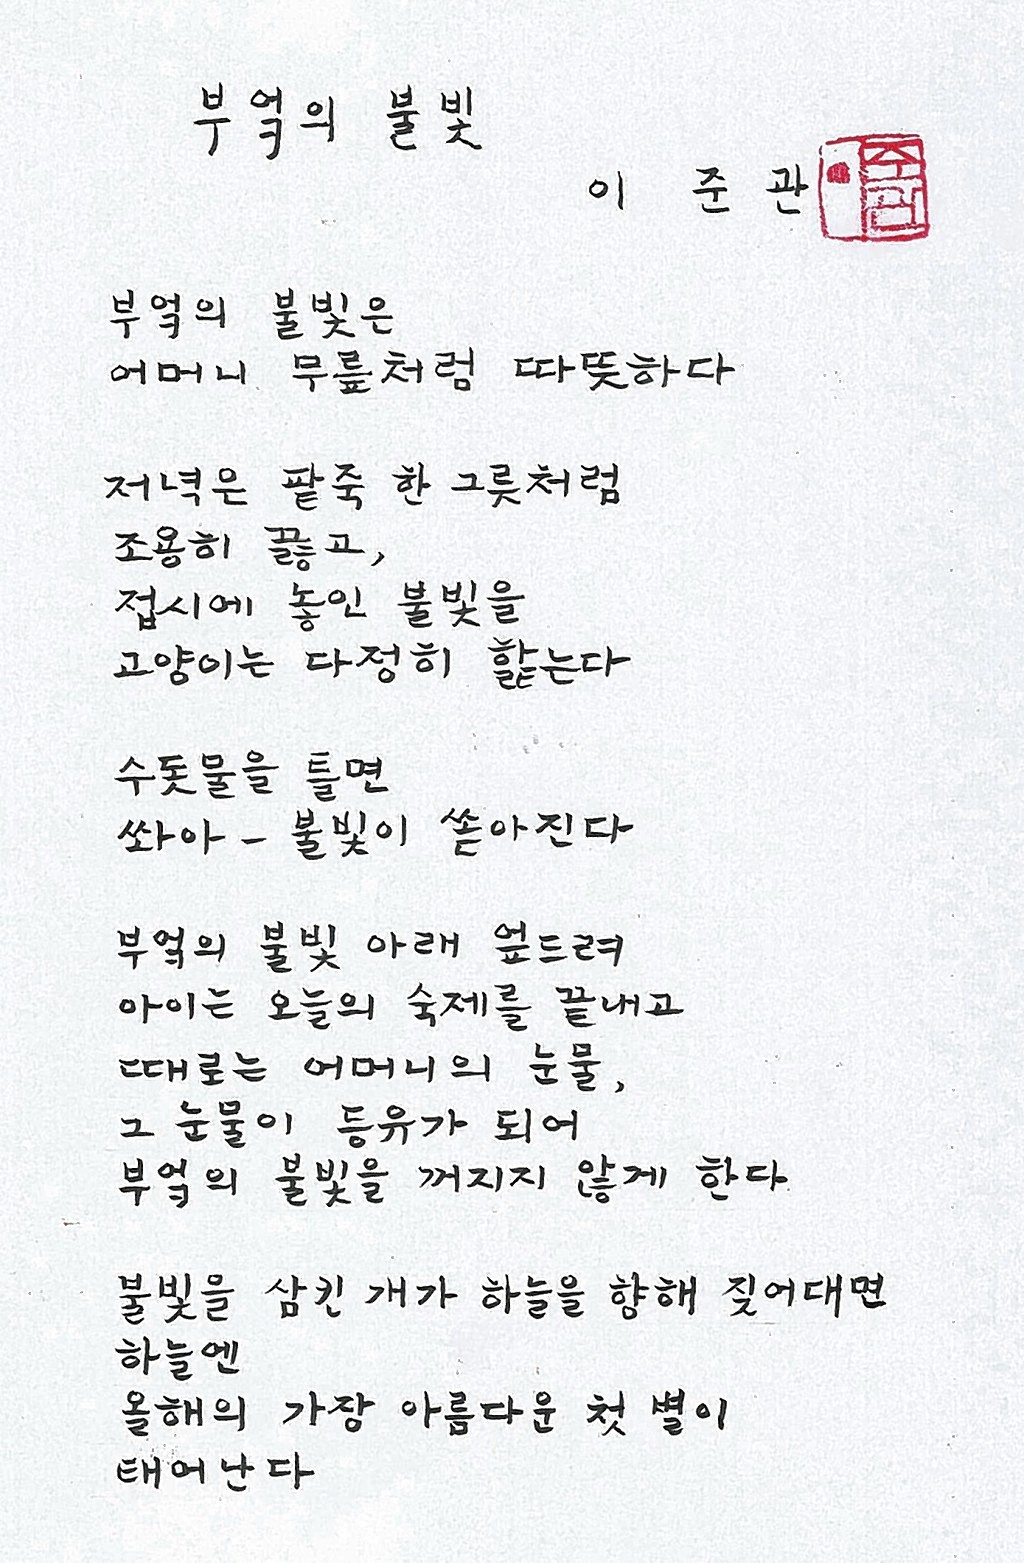 부엌의 불빛
이 준 관
준관
부엌의 불빛은
어머니 무릎처럼 따뜻하다
저녁은 팥죽 한 그릇처럼
조용히 끓고,
접시에 놓인 불빛을
고양이는 다정히 핥는다
수돗물을 틀면
쏴아 – 불빛이 쏟아진다
부엌의 불빛 아래 엎드려
아이는 오늘의 숙제를 끝내고
때로는 어머니의 눈물,
그 눈물이 등유가 되어
부엌의 불빛을 꺼지지 않게 한다
불빛을 삼킨 개가 하늘을 향해 짖어대면
하늘엔
올해의 가장 아름다운 첫 별이
태어난다